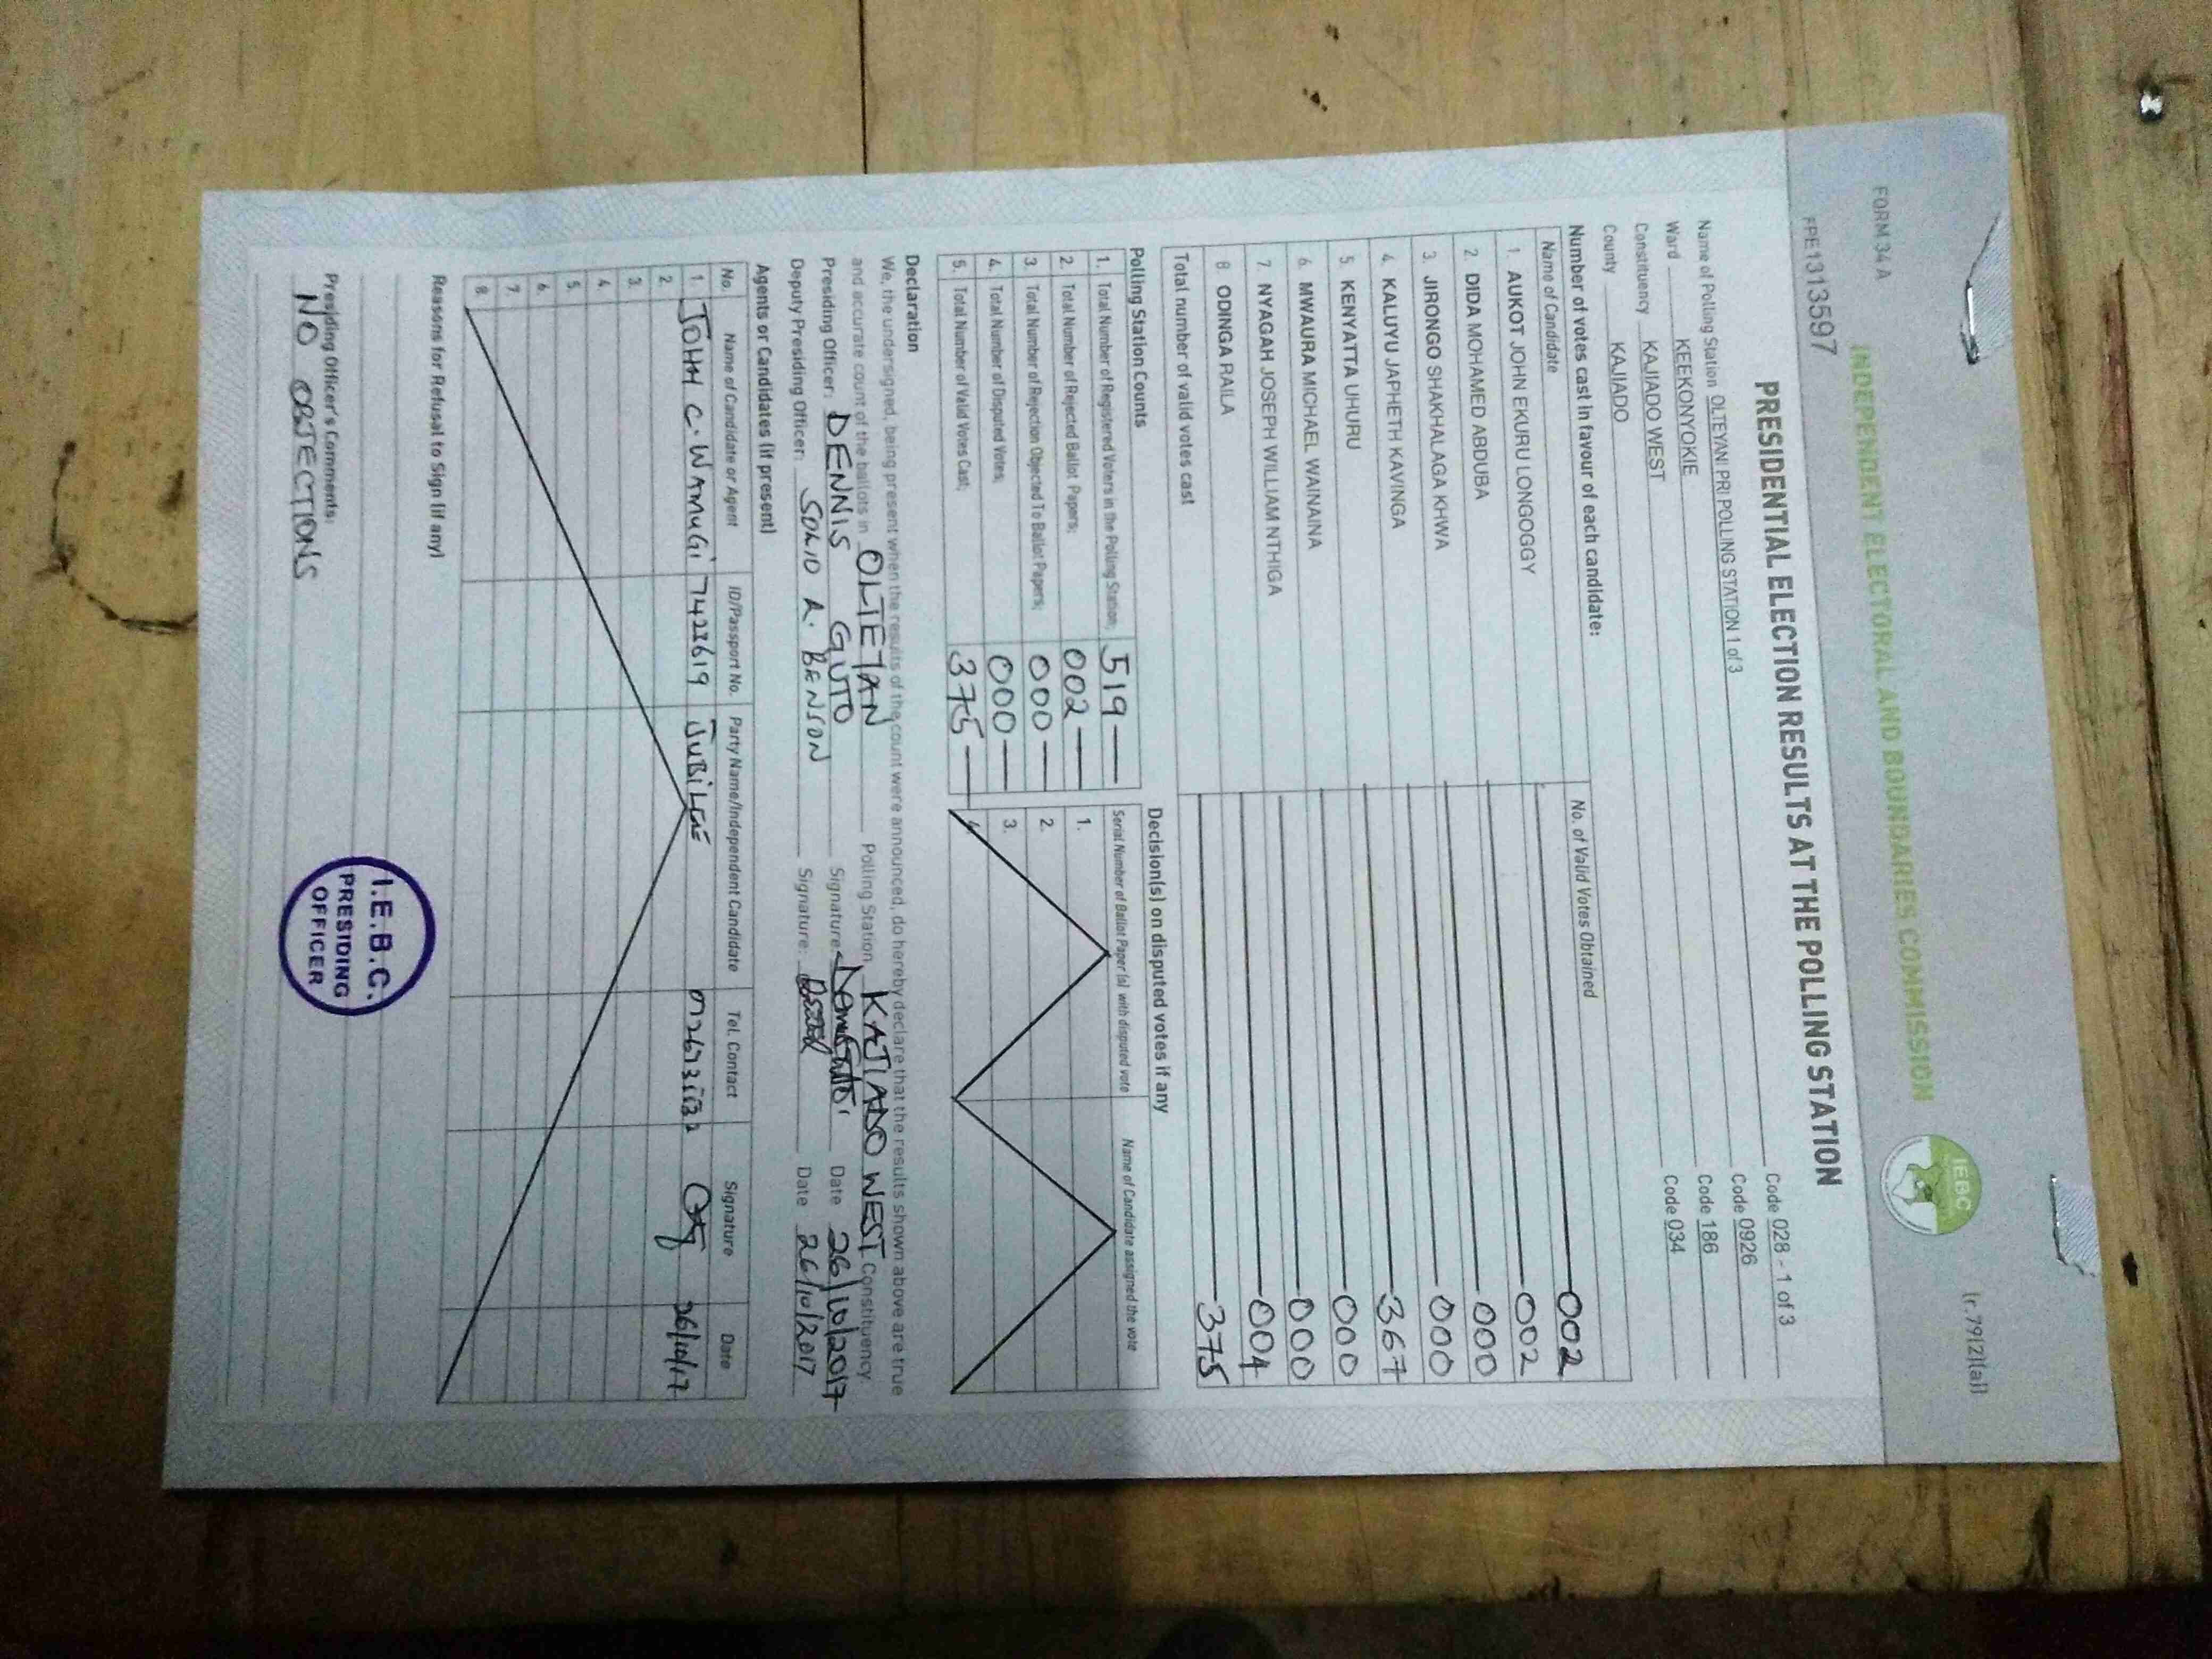 FORM 34 A
(r.79(2)(a))
INDEPENDENT ELECTORAL AND BOUNDARIES COMMISSION
IEBC
FPE1313597
PRESIDENTIAL ELECTION RESULTS AT THE POLLING STATION
Name of Polling Station OLTEYANI PRI POLLING STATION 1 of 3 Code 028 - 1 of 3
Ward KEEKONYOKIE Code 0926
Constituency KAJIADO WEST Code 186
County KAJIADO Code 034
Number of votes cast in favour of each candidate:
Name of Candidate No. of Valid Votes Obtained
1. AUKOT JOHN EKURU LONGOGGY 002
2. DIDA MOHAMED ABDUBA 002
3. JIRONGO SHAKHALAGA KHWA 000
4. KALUYU JAPHETH KAVINGA 000
5. KENYATTA UHURU 367
6. MWAURA MICHAEL WAINAINA 000
7. NYAGAH JOSEPH WILLIAM NTHIGA 000
8. ODINGA RAILA 004
Total number of valid votes cast 375
Polling Station Counts
1. Total Number of Registered Voters in the Polling Station; 519
2. Total Number of Rejected Ballot Papers; 002
3. Total Number of Rejection Objected To Ballot Papers; 000
4. Total Number of Disputed Votes; 000
5. Total Number of Valid Votes Cast; 375
Decision(s) on disputed votes if any
Serial Number of Ballot Paper (s) with disputed vote Name of Candidate assigned the vote
1.
2.
3.
4.
Declaration
We, the undersigned, being present when the results of the count were announced, do hereby declare that the results shown above are true
and accurate count of the ballots in OLTEYAN Polling Station KAJIADO WEST Constituency
Presiding Officer: DENNIS GUTO Signature: Date 26/10/2017
Deputy Presiding Officer: SOLIO R. BENSON Signature: Date 26/10/2017
Agents or Candidates (if present)
No. Name of Candidate or Agent ID/Passport No. Party Name/Independent Candidate Tel. Contact Signature Date
1. JOHN C. WAMUGI 7428619 JUBILEE 26/10/17
2.
3.
4.
5.
6.
7.
8.
Reasons for Refusal to Sign (if any)
Presiding Officer's Comments:
NO OBJECTIONS
I.E.B.C.
PRESIDING
OFFICER